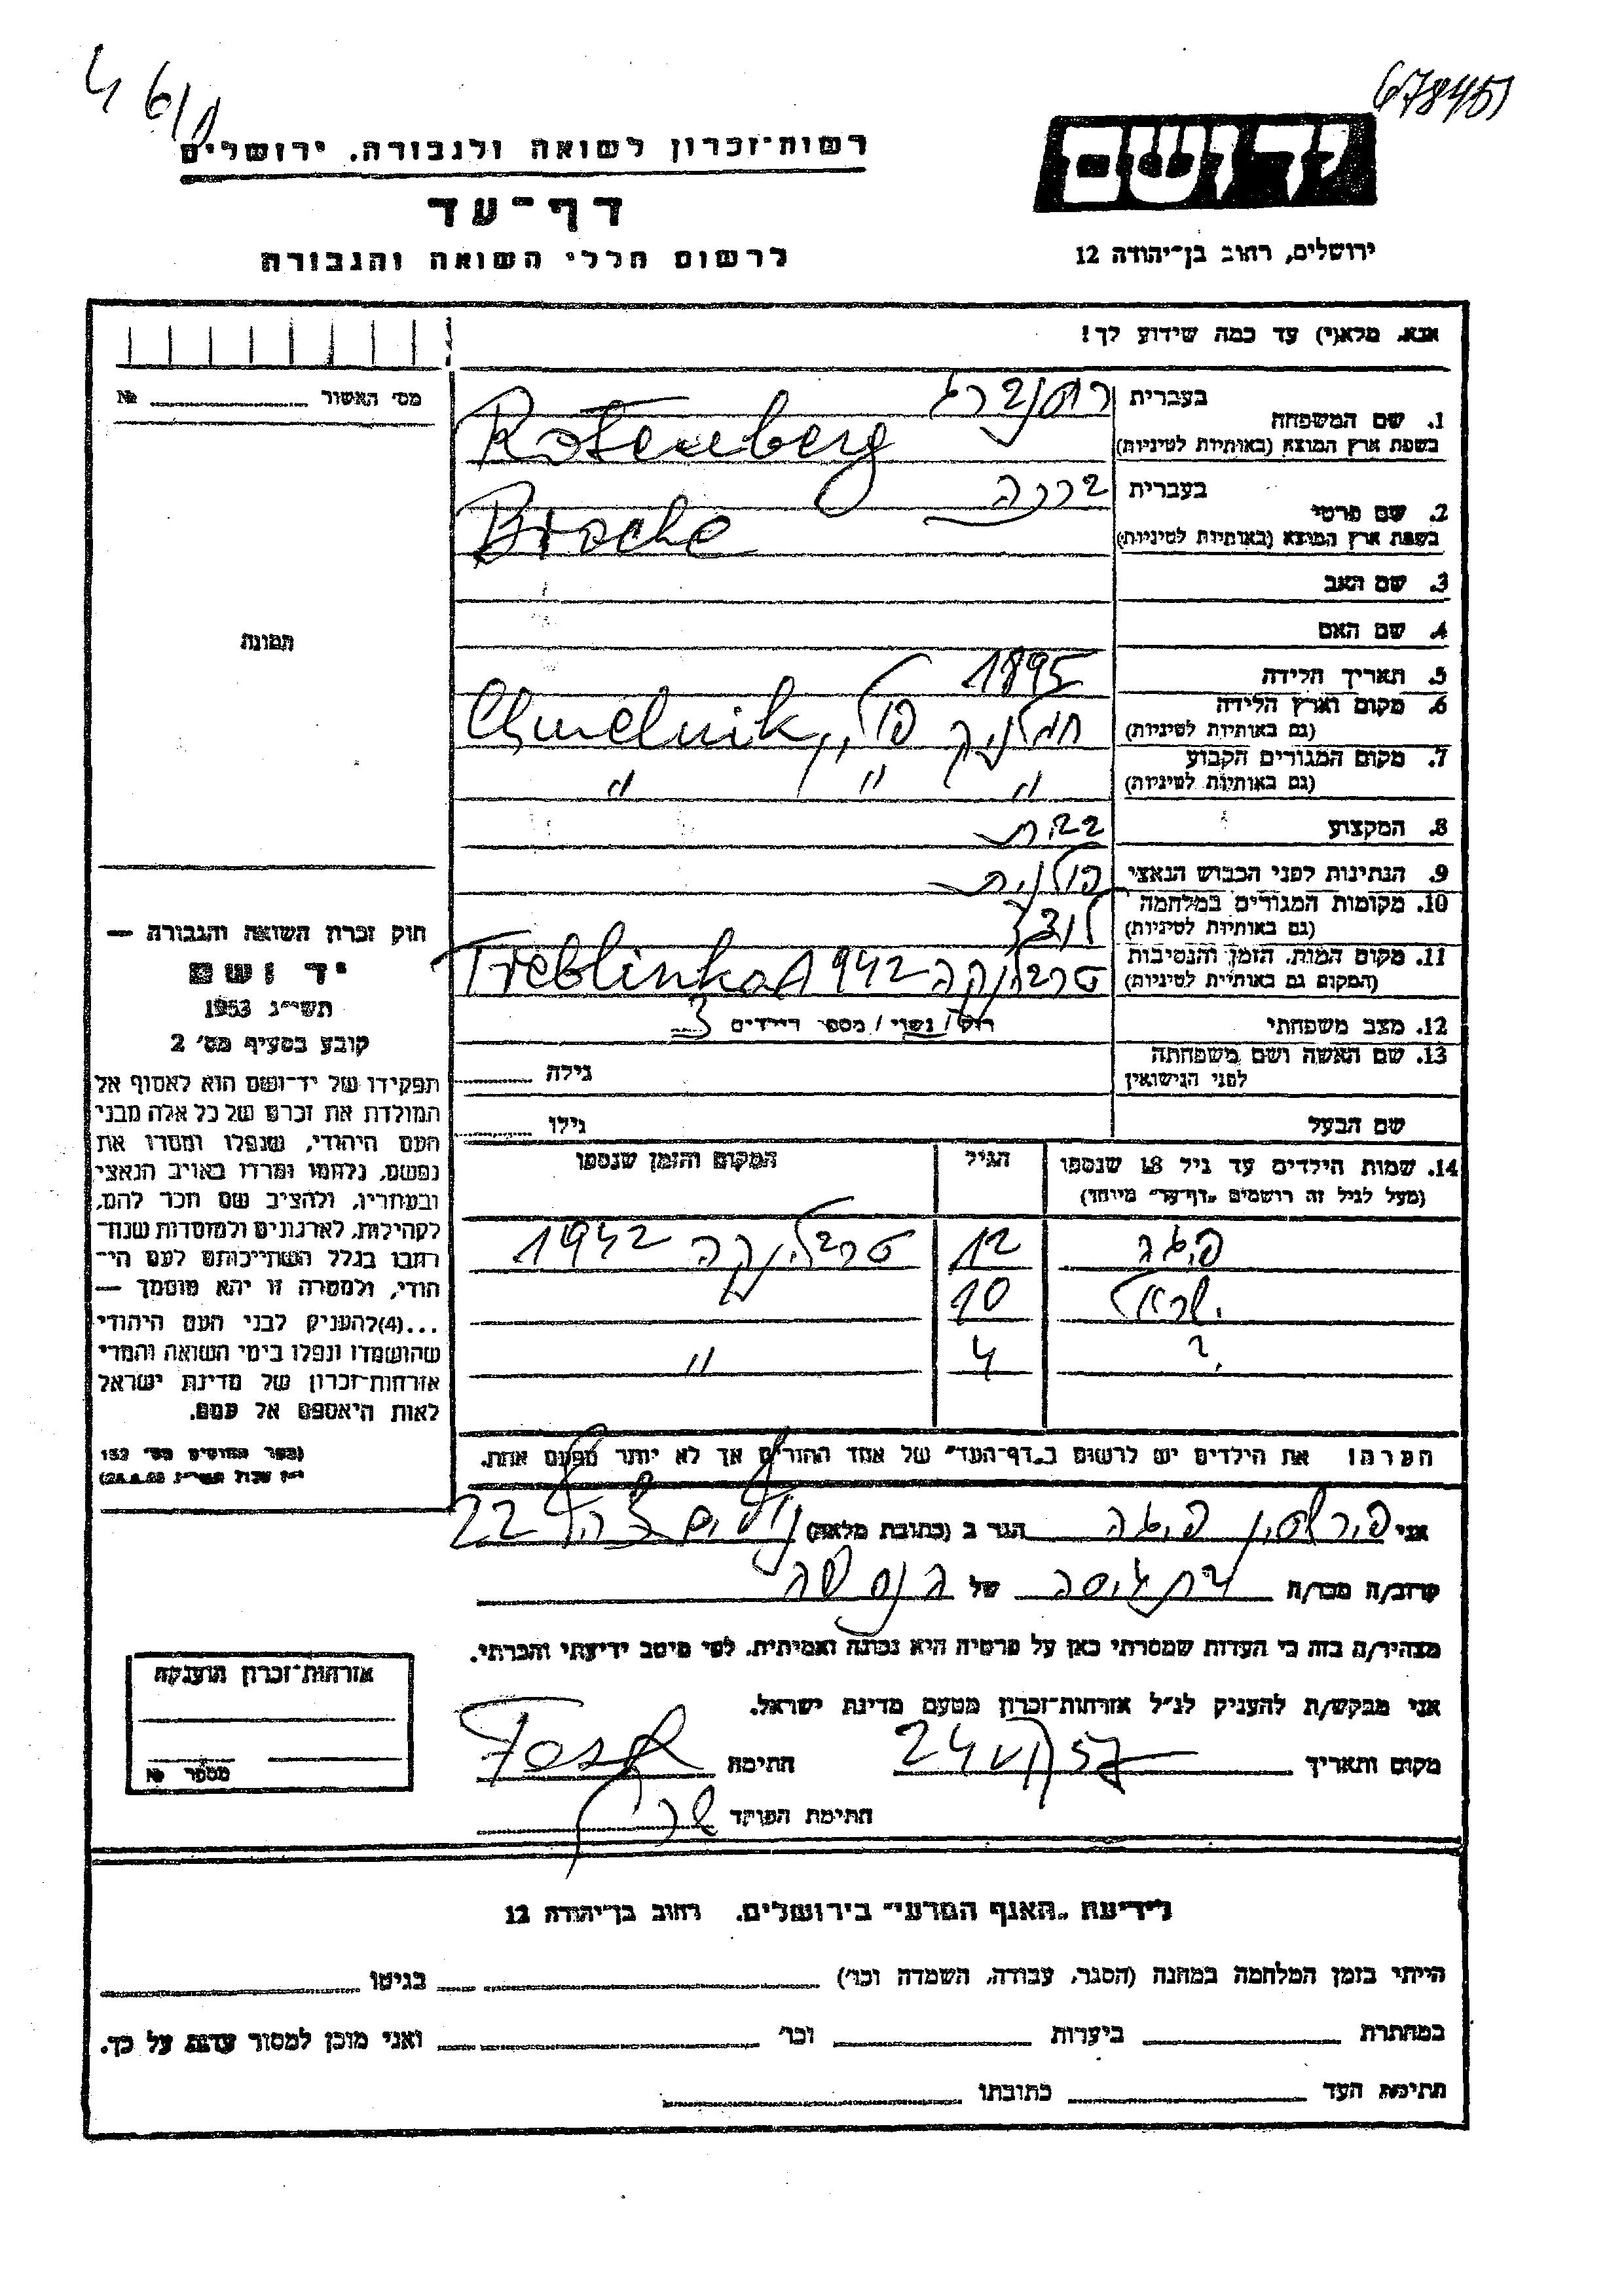 4 6/1
678451
רשות־זכרון לשואה ולגבורה, ירושלים
דף־עד
לרשום חללי השואה והגבורה
יד ושם
ירושלים, רחוב בן־יהודה 12
אנא, מלא(י) עד כמה שידוע לך!
מס׳ האשור № 
1. שם המשפחה
בעברית רוטנברג
בשפת ארץ המוצא (באותיות לטיניות) Rotenberg
2. שם פרטי
בעברית ברכה
בשפת ארץ המוצא (באותיות לטיניות) Broche
3. שם האב
4. שם האם
תמונה
5. תאריך הלידה 1895
6. מקום וארץ הלידה
(גם באותיות לטיניות) חמלניק פולין Chmelnik
7. מקום המגורים הקבוע
(גם באותיות לטיניות) " " "
8. המקצוע
9. הנתינות לפני הכבוש הנאצי פולנית
10. מקומות המגורים במלחמה
(גם באותיות לטיניות) לודז
11. מקום המות, הזמן והנסיבות
(המקום גם באותיות לטיניות) טרבלינקה 1942 Treblinka
12. מצב משפחתי רוק/נשוי/מספר הילדים 3
13. שם האשה ושם משפחתה
לפני הנישואין גילה
שם הבעל גילו
14. שמות הילדים עד גיל 18 שנספו הגיל המקום והזמן שנספו
(מעל לגיל זה רושמים „דף־עד" מיוחד)
פיגה 12 טרבלינקה 1942
ישראל 10
? 4 "
הערה: את הילדים יש לרשום ב„דף־העד" של אחד ההורים אך לא יותר מפעם אחת.
חוק זכרון השואה והגבורה —
יד ושם
תשי״ג 1953
קובע בסעיף מס׳ 2
תפקידו של יד־ושם הוא לאסוף אל
המולדת את זכרם של כל אלה מבני
העם היהודי, שנפלו ומסרו את
נפשם, נלחמו ומרדו באויב הנאצי
ובעוזריו, ולהציב שם וזכר להם,
לקהילות, לארגונים ולמוסדות שנח־
רבו בגלל השתייכותם לעם הי־
הודי, ולמטרה זו יהא מוסמך —
...(4) להעניק לבני העם היהודי
שהושמדו ונפלו בימי השואה והמרי
אזרחות־זכרון של מדינת ישראל
לאות היאספם אל עמם.
(ספר החוקים מס׳ 132
אני פיגה הגר ב (כתובת מלאה) 22
קרוב/ה מכר/ה של
מצהיר/ה בזה כי העדות שמסרתי כאן על פרטיה היא נכונה ואמיתית, לפי מיטב ידיעתי והכרתי.
אני מבקש/ת להעניק לנ״ל אזרחות־זכרון מטעם מדינת ישראל.
מקום ותאריך 24 VI 57 חתימה
חתימת הפוקד
אזרחות־זכרון הוענקה
מספר №
לידיעת „האגף המדעי" בירושלים, רחוב בן־יהודה 12
הייתי בזמן המלחמה במחנה (הסגר, עבודה, השמדה וכו׳) בגיטו
במחתרת ביערות וכו׳ ואני מוכן למסור עדות על כך.
חתימת העד כתובתו